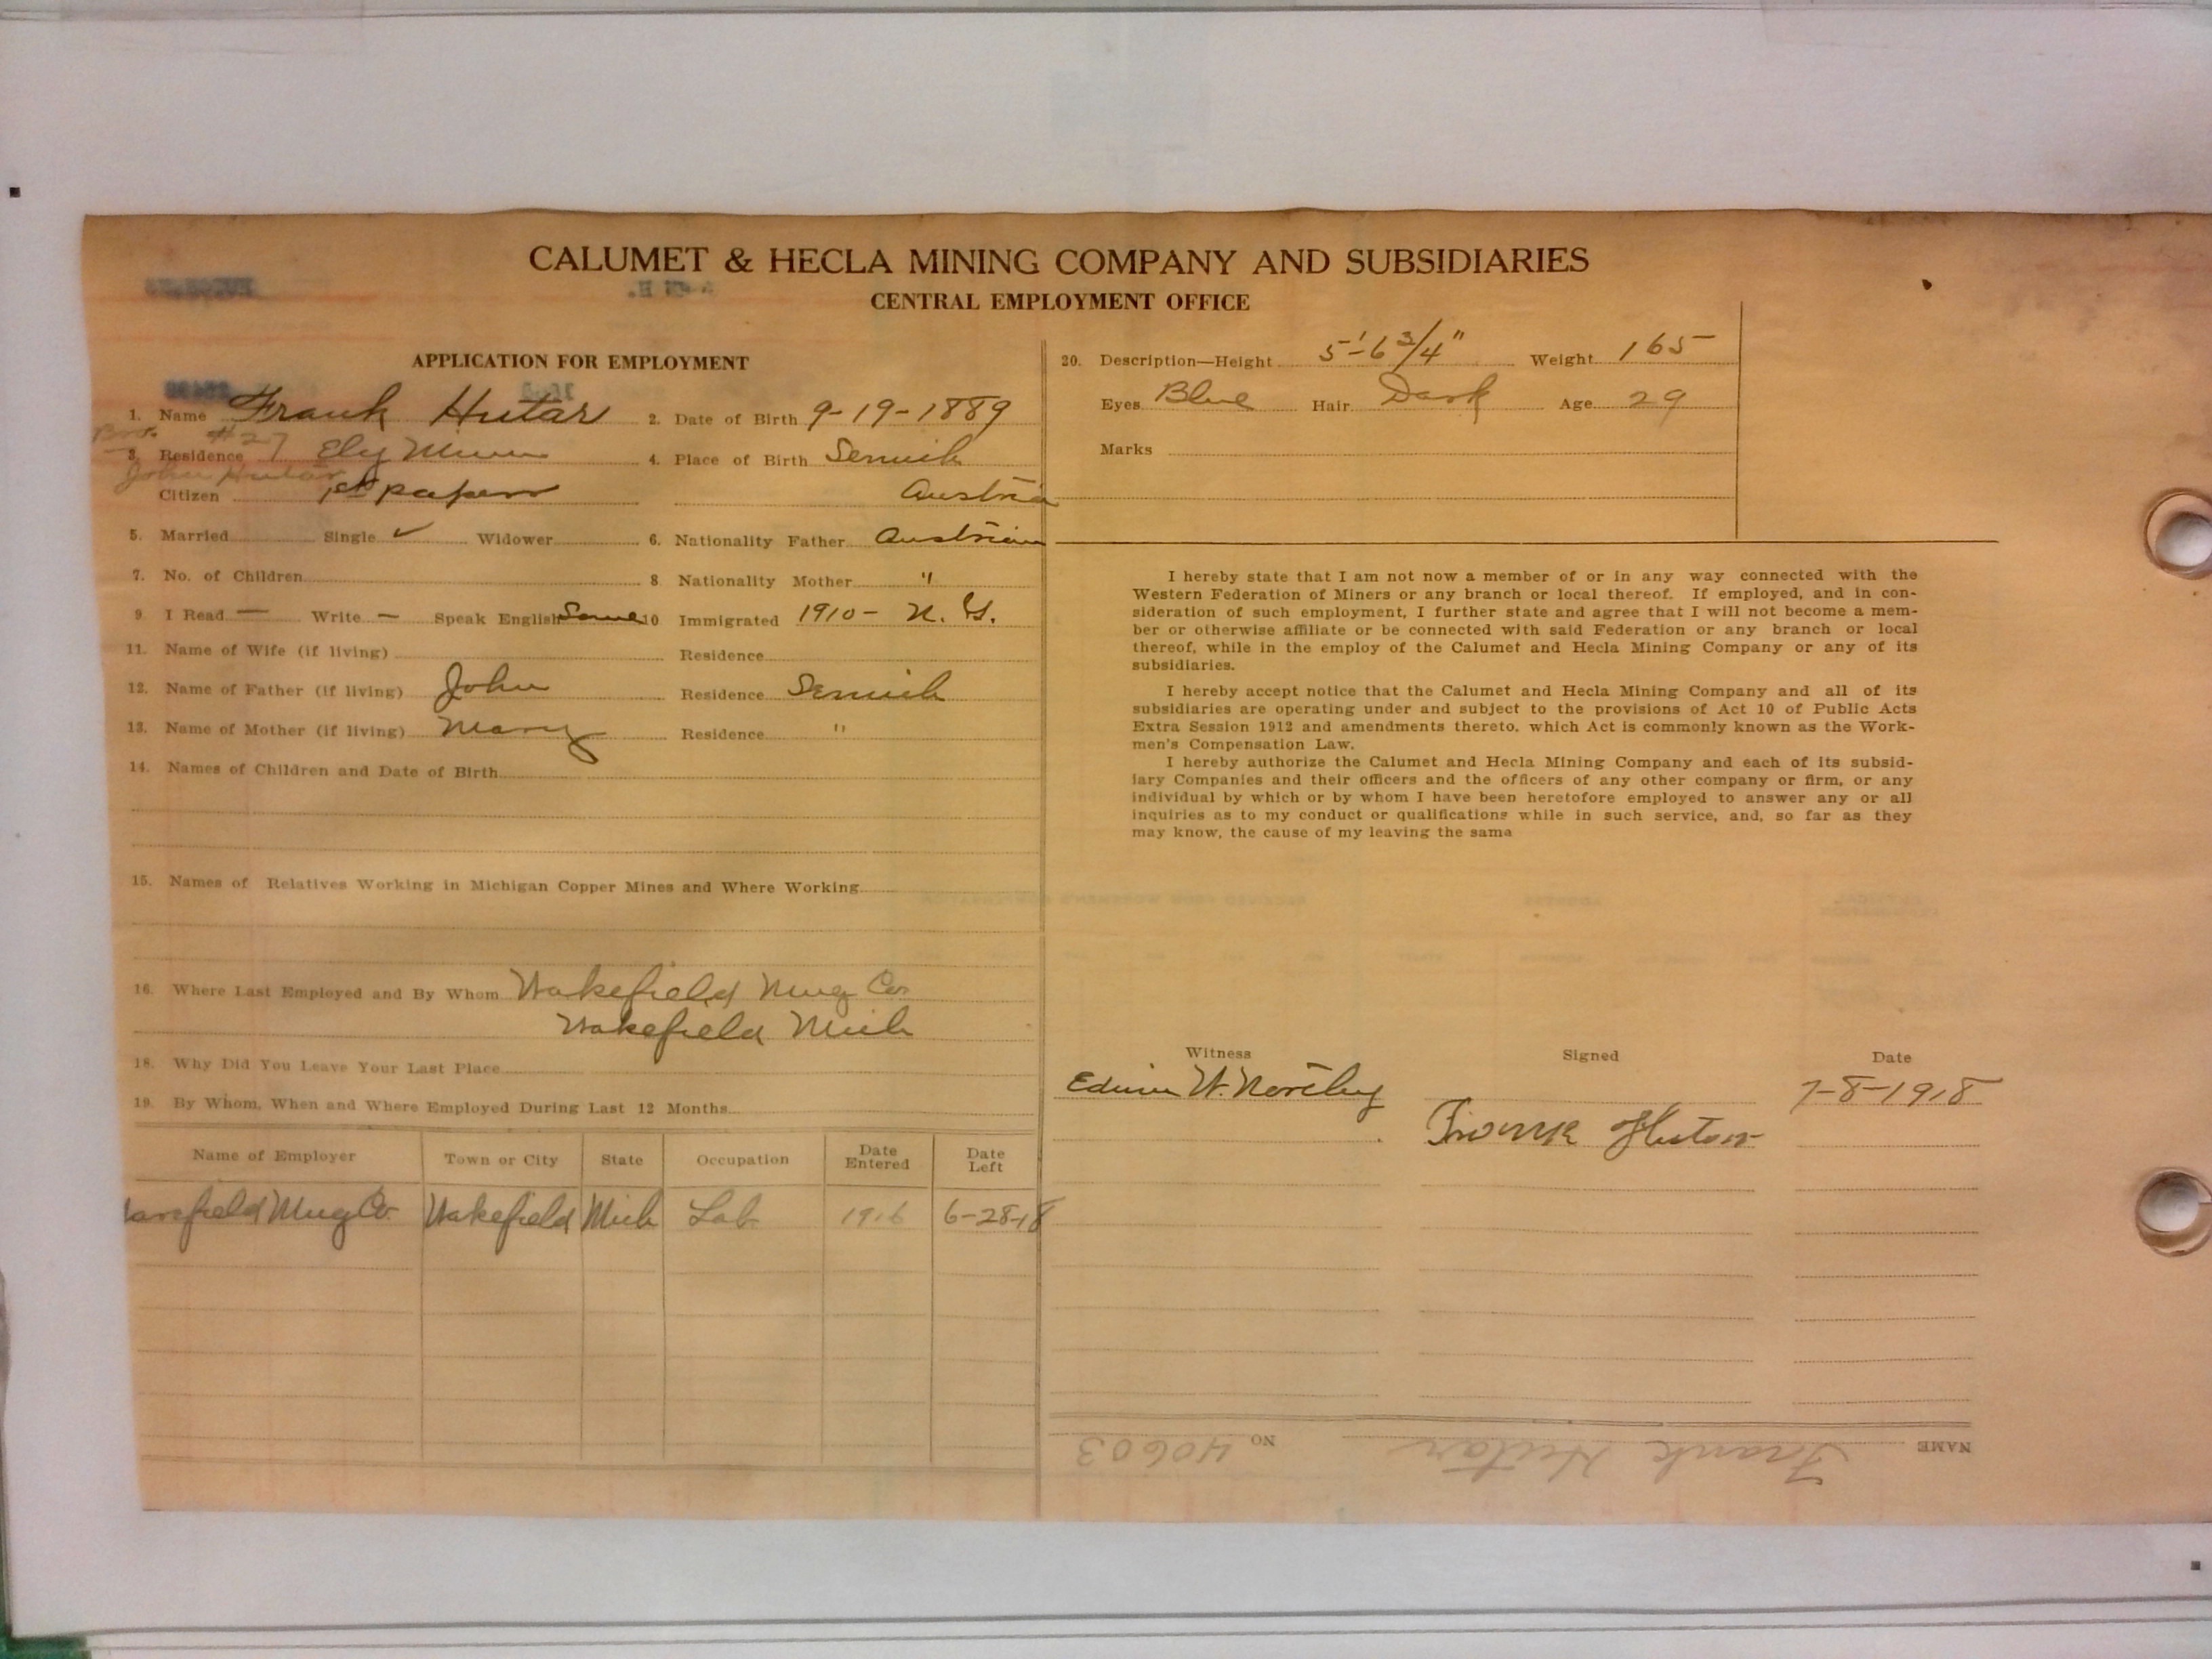 CALUMET & HECLA MINING COMPANY AND SUBSIDIARIES
CENTRAL EMPLOYMENT OFFICE
APPLICATION FOR EMPLOYMENT
1. Name Frank Hutar 2. Date of Birth 9-19-1889
#27
3. Residence Ely Minn 4. Place of Birth Semich
John Hutar
Citizen 1st papers Austria
5. Married Single ✓ Widower 6. Nationality Father Austrian
7. No. of Children 8 Nationality Mother "
9. I Read — Write — Speak English Some 10 Immigrated 1910 - N. Y.
11. Name of Wife (if living) Residence
12. Name of Father (if living) John Residence Semich
13. Name of Mother (if living) Mary Residence "
14. Names of Children and Date of Birth
15. Names of Relatives Working in Michigan Copper Mines and Where Working
16. Where Last Employed and By Whom Wakefield Mng Co.
Wakefield Mich
18. Why Did You Leave Your Last Place
19. By Whom, When and Where Employed During Last 12 Months
Name of Employer Town or City State Occupation Date Entered Date Left
Wakefield Mng Co. Wakefield Mich Lab 1916 6-28-18
20. Description—Height 5'-6 3/4" Weight 165
Eyes Blue Hair Dark Age 29
Marks
I hereby state that I am not now a member of or in any way connected with the
Western Federation of Miners or any branch or local thereof. If employed, and in con-
sideration of such employment, I further state and agree that I will not become a mem-
ber or otherwise affiliate or be connected with said Federation or any branch or local
thereof, while in the employ of the Calumet and Hecla Mining Company or any of its
subsidiaries.
I hereby accept notice that the Calumet and Hecla Mining Company and all of its
subsidiaries are operating under and subject to the provisions of Act 10 of Public Acts
Extra Session 1912 and amendments thereto, which Act is commonly known as the Work-
men's Compensation Law.
I hereby authorize the Calumet and Hecla Mining Company and each of its subsid-
iary Companies and their officers and the officers of any other company or firm, or any
individual by which or by whom I have been heretofore employed to answer any or all
inquiries as to my conduct or qualifications while in such service, and, so far as they
may know, the cause of my leaving the same
Witness Signed Date
Edwin W. Northey 7-8-1918
Frank Hutar
NAME Frank Hutar NO 40603